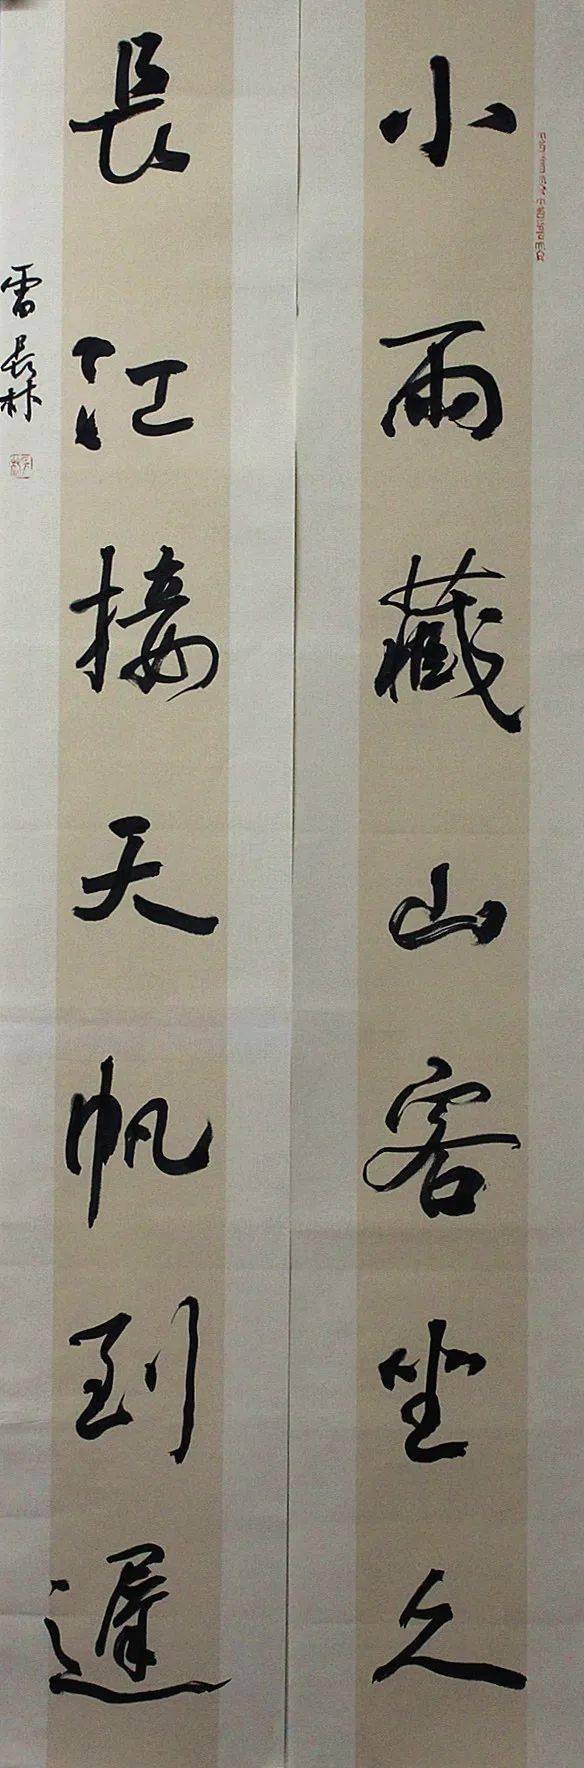 小雨藏山客坐久
長江接天帆到遲
雷長林